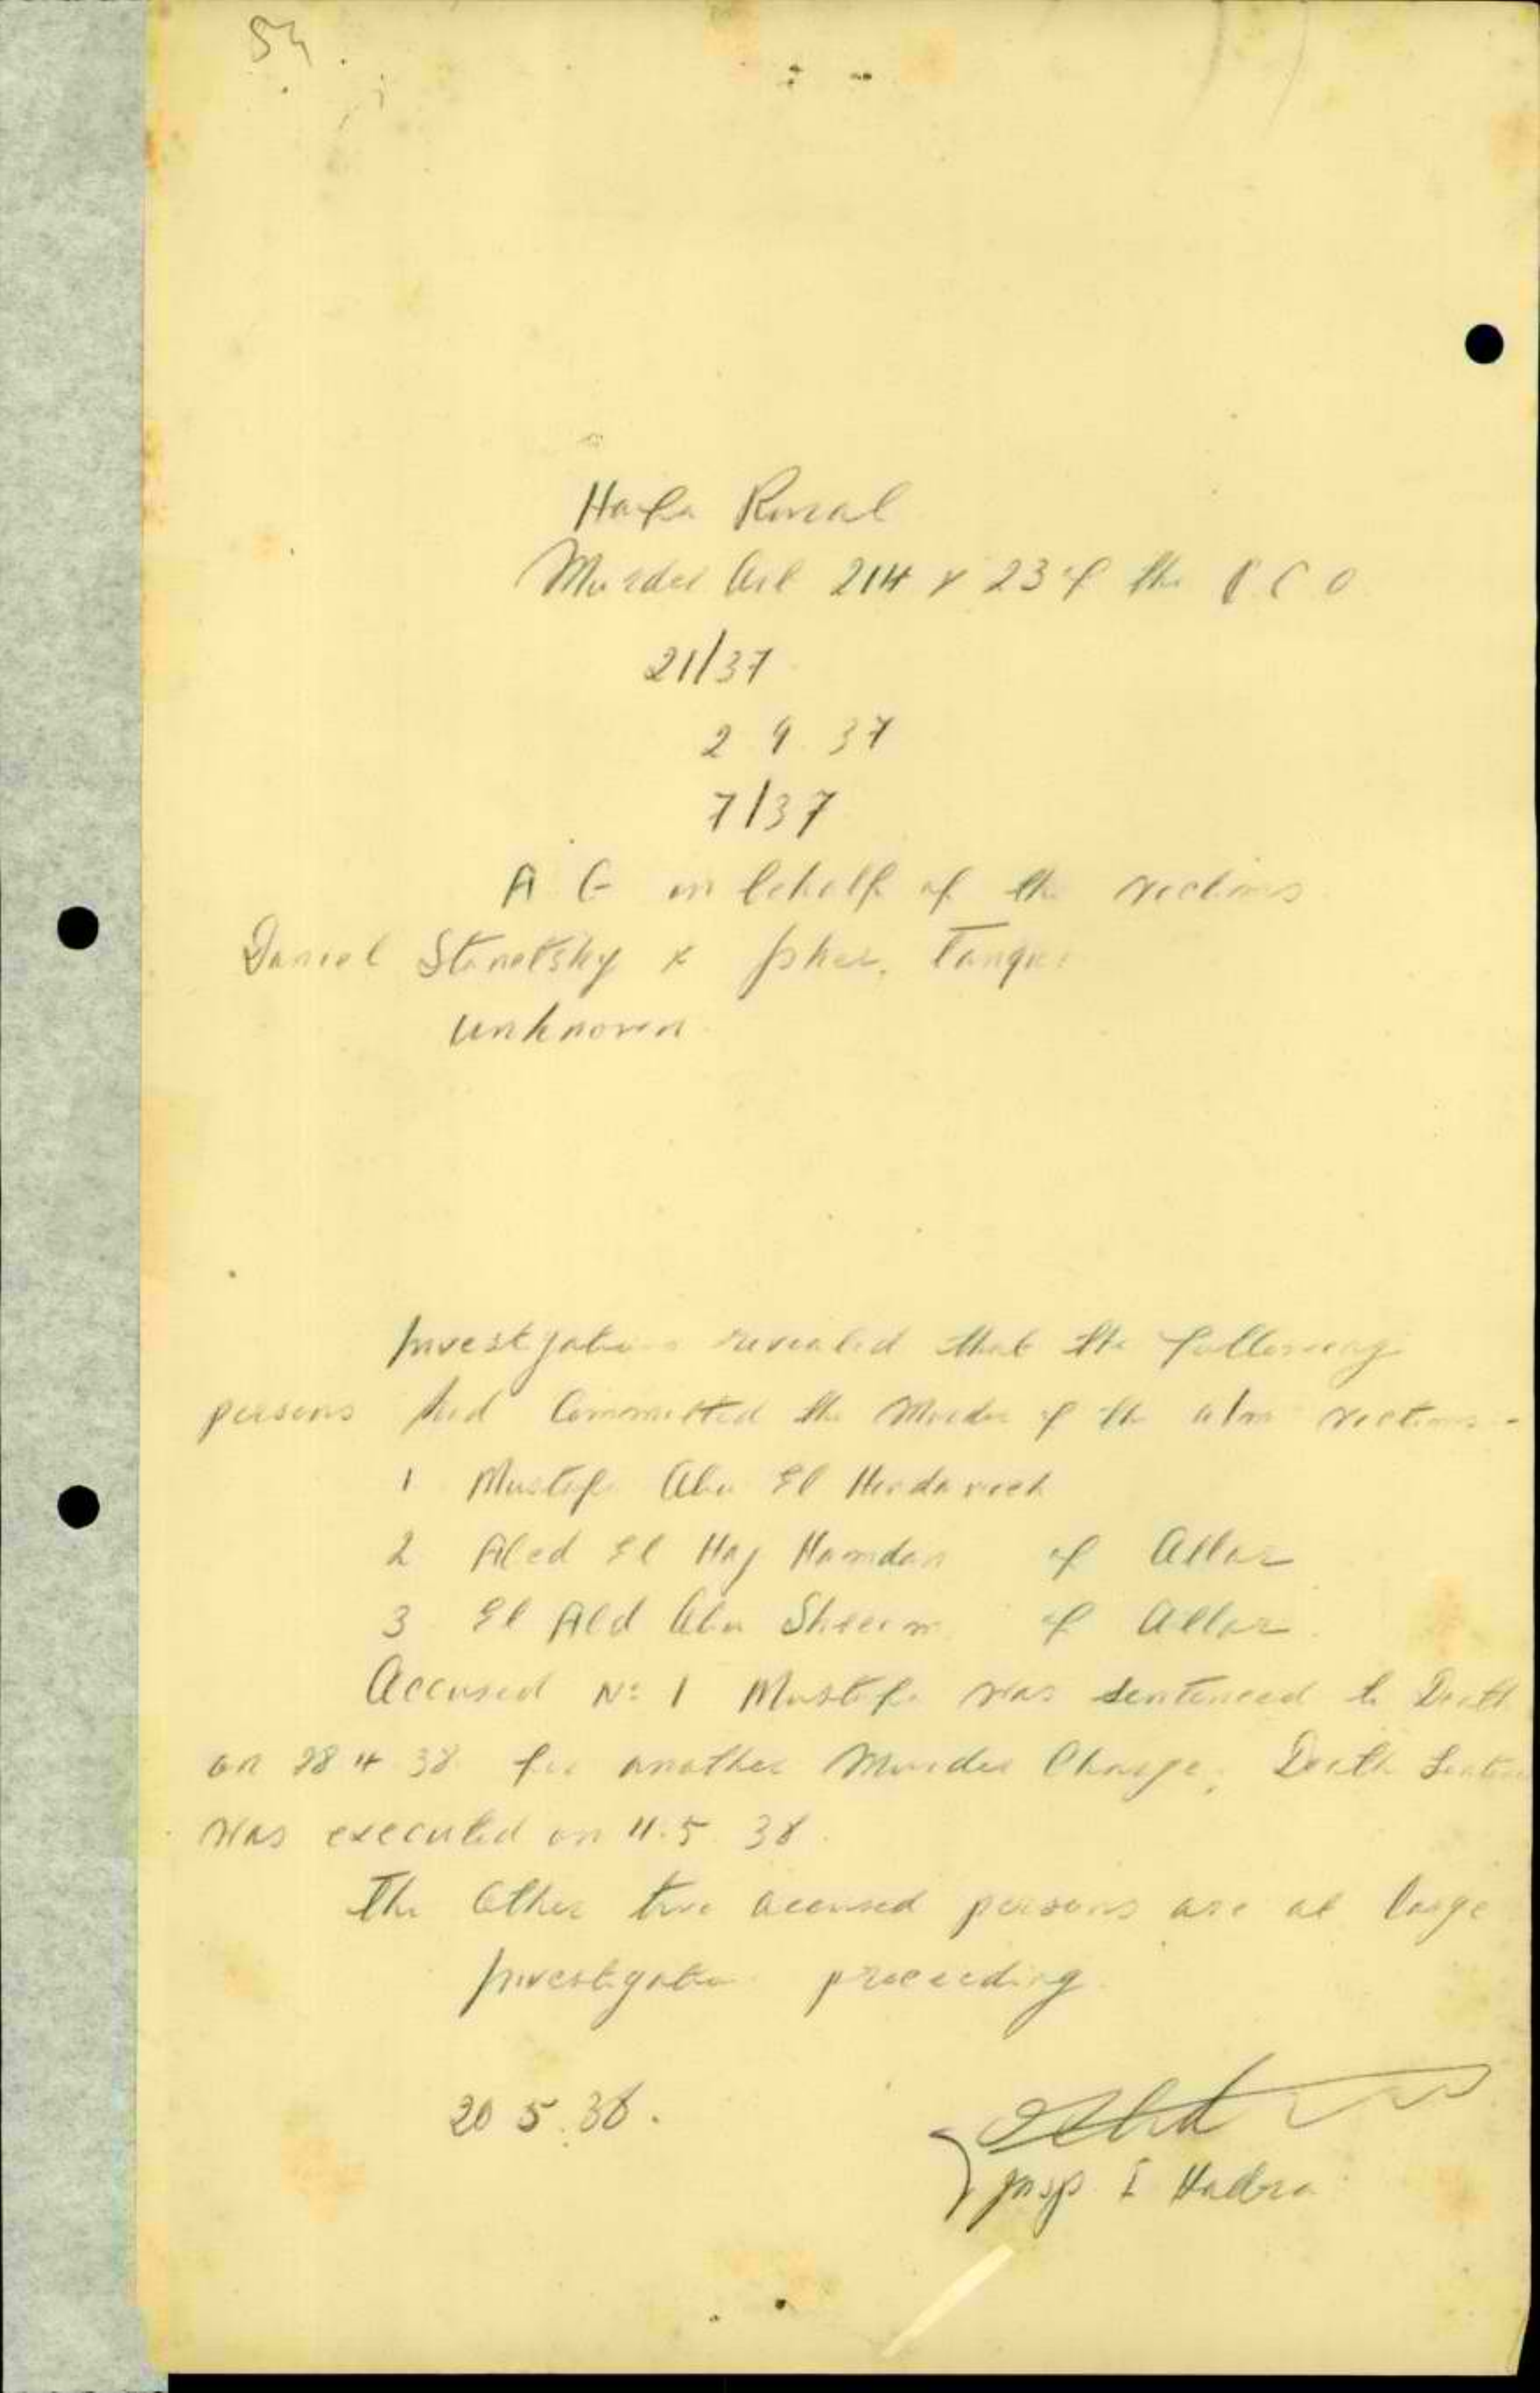 54.
Haifa Rural
Murder Art 214 & 23 of the P C O
21/37
2 9 37
7/37
A G on behalf of the victims
Daniel Stanetsky &
unknown
Investigations revealed that the following
persons had Committed the Murder of the above victims -
1 Mustafa Abu El
2 Abed El Haj Hamdan of Allar
3 El Abd Abu of Allar.
Accused No 1 Mustafa was sentenced to Death
on 28 4 38 for another Murder Charge, Death Sentence
was executed on 11.5.38.
The Other two accused persons are at large
Investigation proceeding
20 5.38.
Insp I Hadra